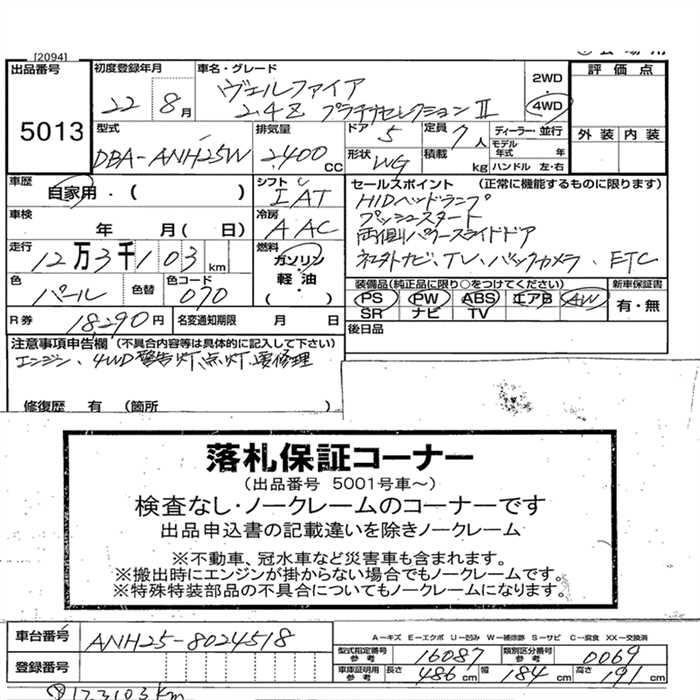 [2094]
出品番号 初度登録年月 車名・グレード 2WD 評価点
22 8月 ヴェルファイア 2.4Z プラチナセレクションⅡ 4WD
5013
型式 排気量 ドア 5 定員 7人 ディーラー・並行 外装 内装
モデル年式 年
DBA-ANH25W 2,400cc 形状 WG 積載 kg ハンドル 左・右
車歴 自家用・( ) シフト IAT セールスポイント (正常に機能するものに限ります)
HIDヘッドランプ
車検 年 月( 日) 冷房 AAC プッシュスタート
両側パワースライドドア
走行 12万3千103km 燃料 ガソリン 軽油 (・)
社外ナビ、TV、バックカメラ、ETC
色 パール 色替 色コード 070 装備品(純正品に限り○をつけてください) 新車保証書
PS PW ABS エアB AW 有・無
SR ナビ TV
R券 18,290円 名変通知期限 月 日 後日品
注意事項申告欄 (不具合内容等は具体的に記入して下さい)
エンジン、4WD警告灯点灯要修理
修復歴 有 (箇所
落札保証コーナー
(出品番号 5001号車~)
検査なし・ノークレームのコーナーです
出品申込書の記載違いを除きノークレーム
※不動車、冠水車など災害車も含まれます。
※搬出時にエンジンが掛からない場合でもノークレームです。
※特殊特装部品の不具合についてもノークレームになります。
車台番号 ANH25-8024518
A-キズ E-エクボ U-凹み W-補修跡 S-サビ C-腐食 XX-交換済
型式指定番号 参考 16087 類別区分番号 参考 0069
登録番号 車庫証明用 参考 長さ 486cm 幅 184cm 高さ 191cm
123103km